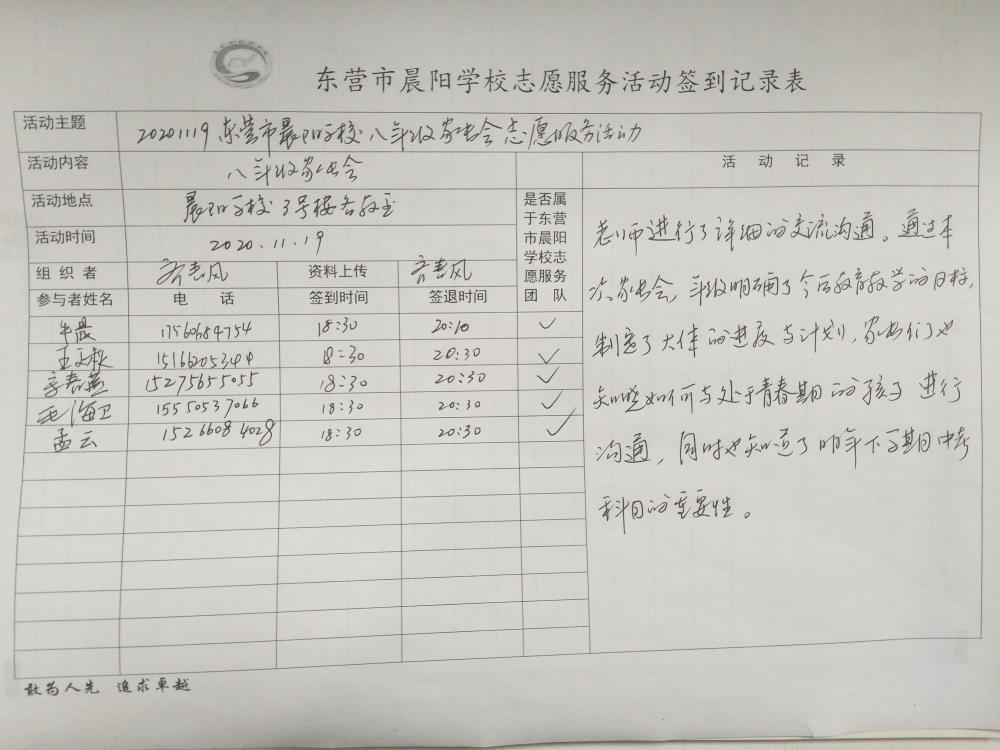 东营市晨阳学校志愿服务活动签到记录表
活动主题 20201119东营市晨阳学校八年级家长会志愿服务活动
活动内容 八年级家长会
活动地点 晨阳学校3号楼各教室
活动时间 2020.11.19
是否属于东营市晨阳学校志愿服务团队
组织者 齐春风 资料上传 齐春风
参与者姓名 电话 签到时间 签退时间
牛晨 17560684754 18:30 20:10 ✓
王文秋 15166205344 18:30 20:30 ✓
李春燕 15275655055 18:30 20:30 ✓
毛海卫 15550537066 18:30 20:30 ✓
孟云 15266084028 18:30 20:30 ✓
活动记录
老师进行了详细的交流沟通。通过本
次家长会,年级明确了今后教育教学的目标,
制定了大体的进度与计划,家长们也
知晓如何与处于青春期的孩子进行
沟通,同时也知道了明年下学期中考
科目的重要性。
敢为人先 追求卓越